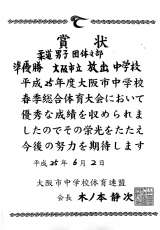 賞状
柔道男子団体の部
準優勝 大阪市立放出中学校
平成25年度大阪市中学校
春季総合体育大会において
優秀な成績を収められ
ましたのでその栄光をたたえ
今後の努力を期待します
平成25年6月2日
大阪市中学校体育連盟
会長 木ノ本静次